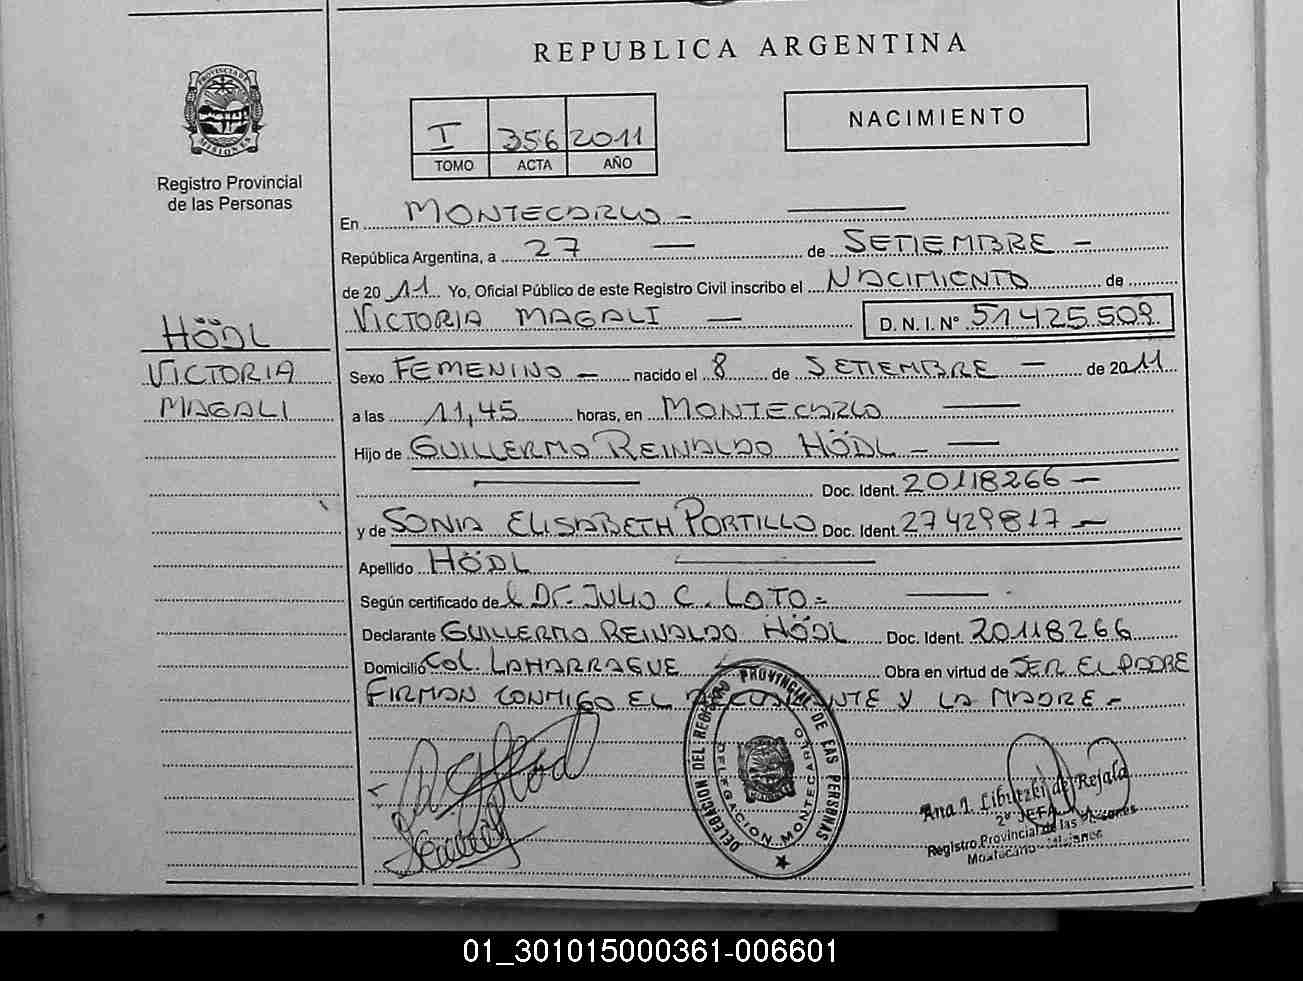 REPUBLICA ARGENTINA
PROVINCIA DE
MISIONES
Registro Provincial
de las Personas
I 356 2011
TOMO ACTA AÑO
NACIMIENTO
En MONTECARLO -
República Argentina, a 27 de SETIEMBRE -
de 20 11 Yo, Oficial Público de este Registro Civil inscribo el NACIMIENTO de
VICTORIA MAGALI — D. N. I. Nº 51425509
HÖDL
VICTORIA
MAGALI
Sexo FEMENINO - nacido el 8 de SETIEMBRE - de 2011
a las 11,45 horas, en MONTECARLO
Hijo de GUILLERMO REINALDO HÖDL -
Doc. Ident. 20118266 -
y de SONIA ELISABETH PORTILLO Doc. Ident. 27429817 -
Apellido HÖDL
Según certificado del DR. JULIO C. LOTO =
Declarante GUILLERMO REINALDO HÖDL Doc. Ident. 20118266
Domicilio COL. LAHARRAGUE Obra en virtud de SER EL PADRE
FIRMAN CONMIGO EL DECLARANTE Y LA MADRE -
DELEGACION DEL REGISTRO PROVINCIAL DE LAS PERSONAS
DELEGACION MONTECARLO
Ana I. Libutzki de Rejala
2º JEFA
Registro Provincial de las Personas
Montecarlo - Misiones
01_301015000361-006601